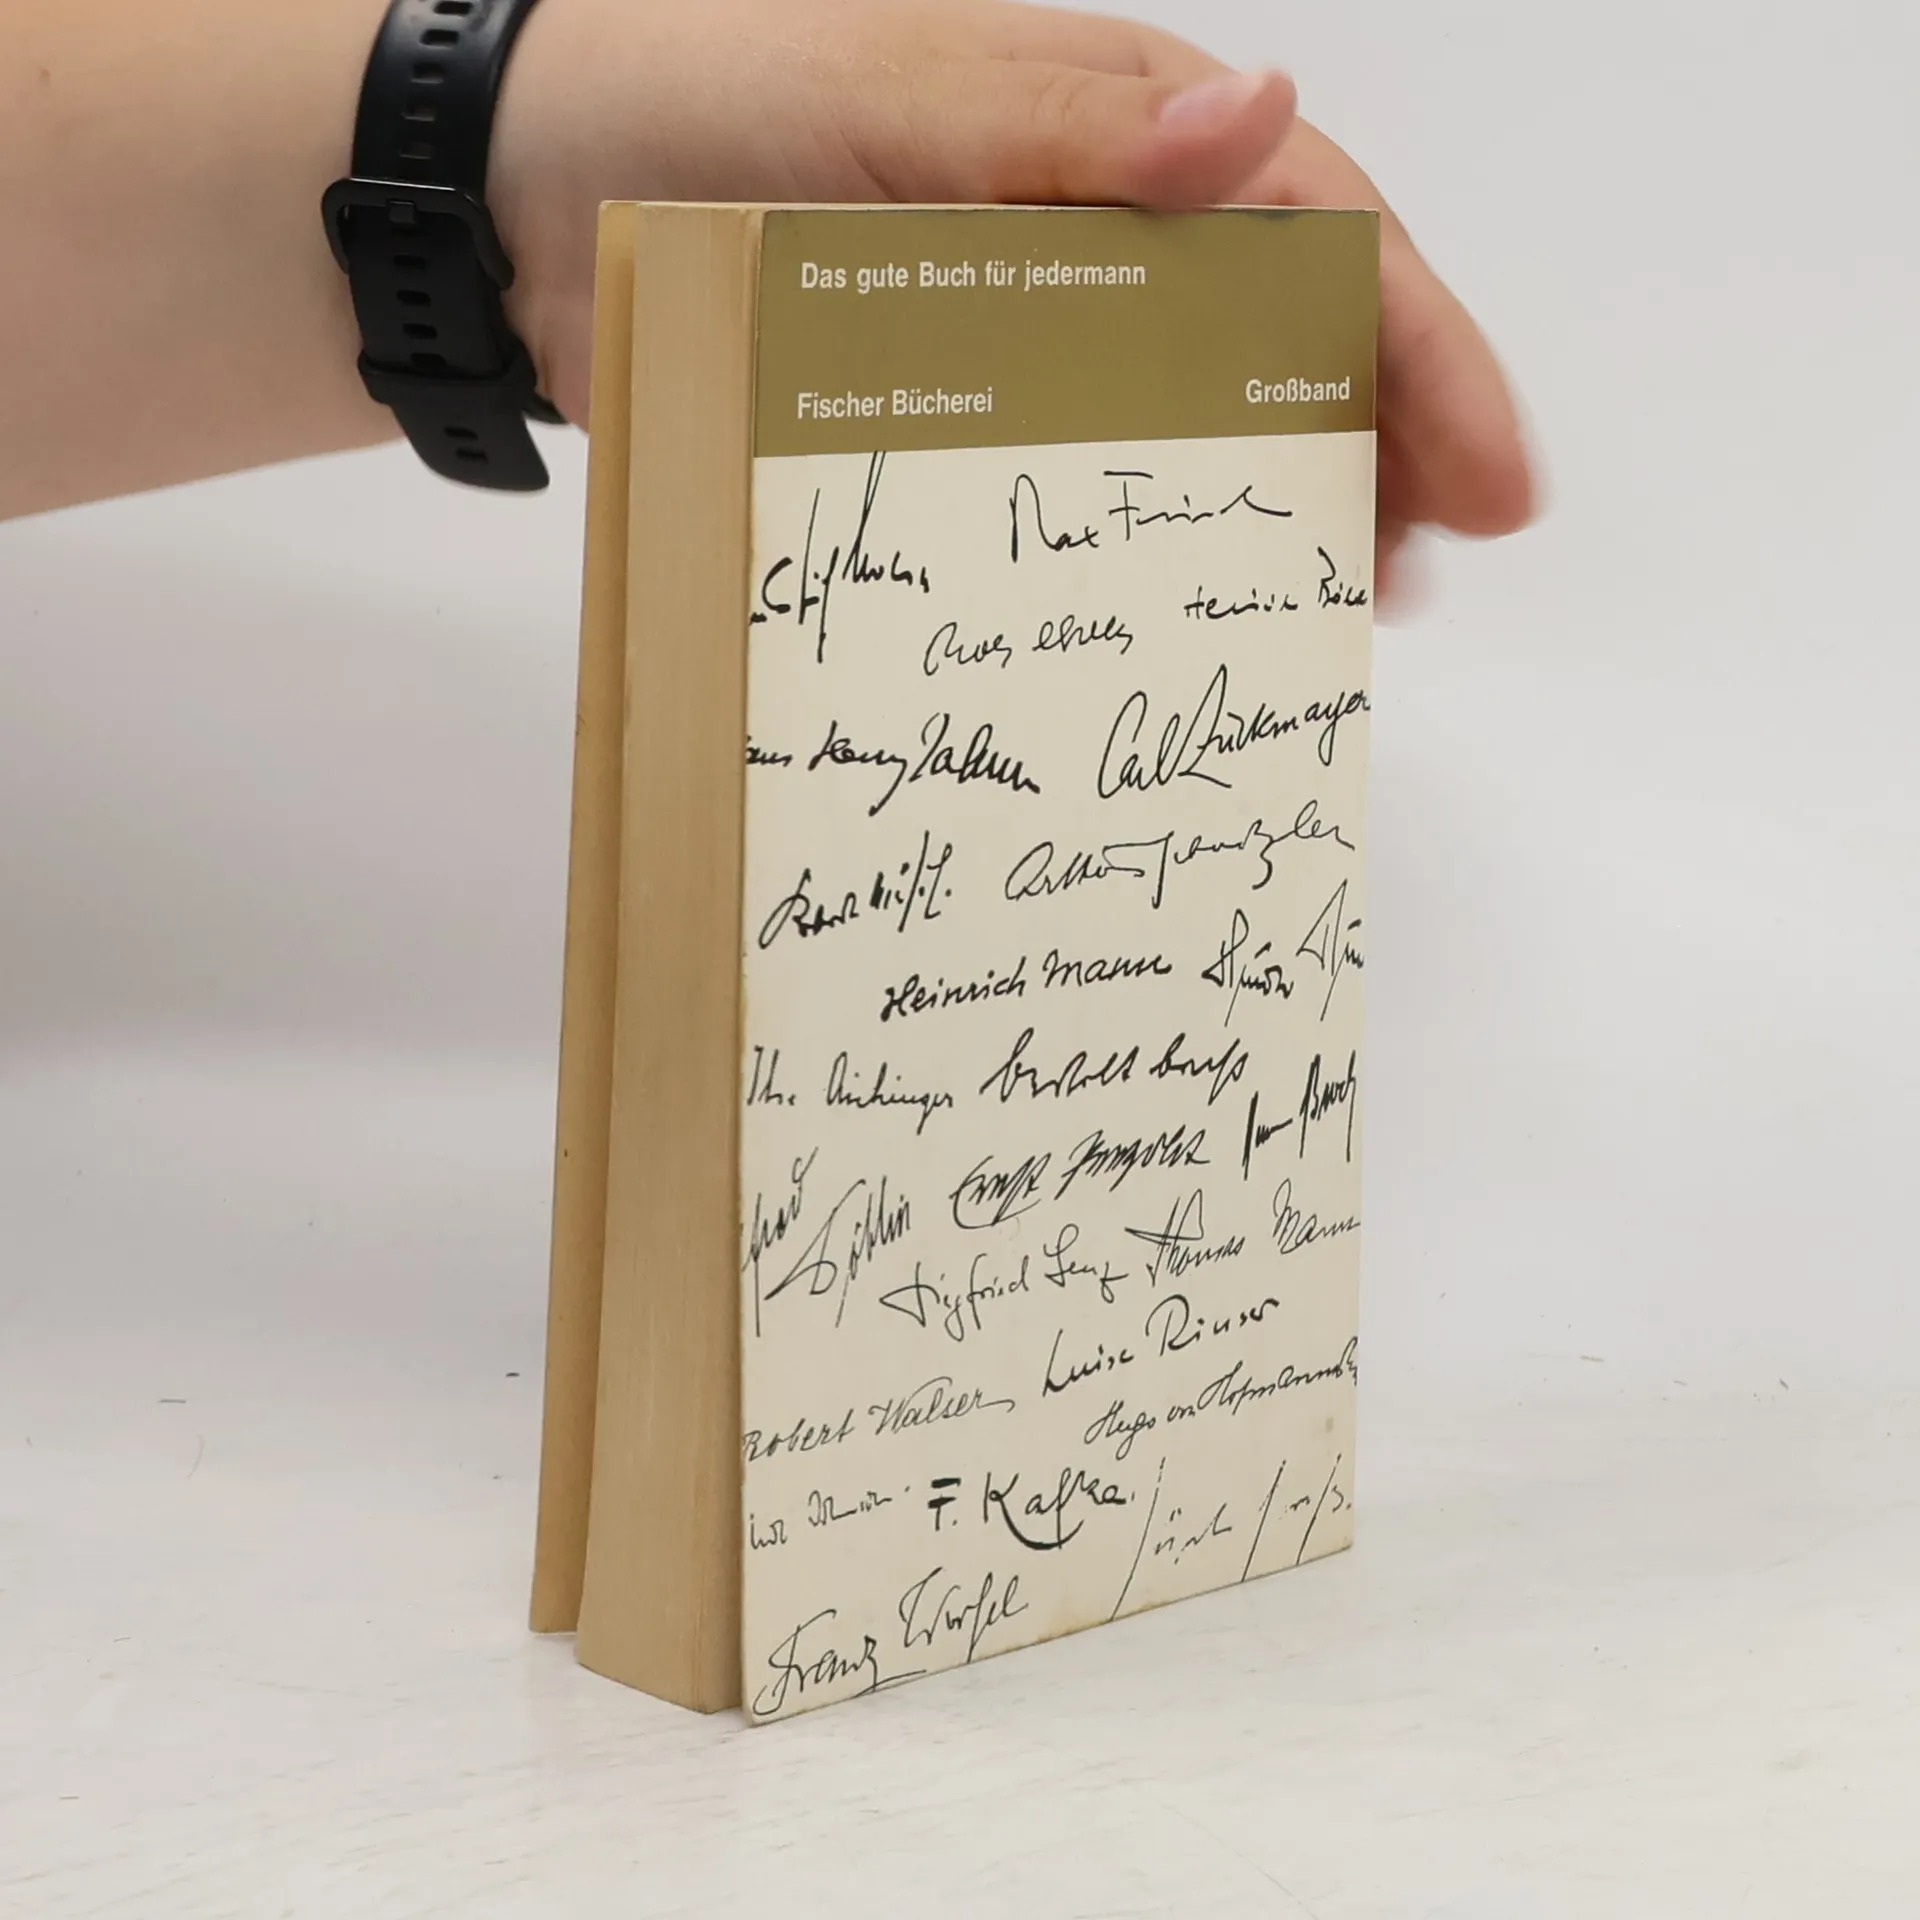 Das gute Buch für jedermann
Fischer Bücherei Großband
Max Frisch
Heinrich Böll
Henny Jahnn Carl Zuckmayer
Arthur Schnitzler
Heinrich Mann
Ilse Aichinger bertolt brecht
Döblin Ernst Penzoldt Broch
Siegfried Lenz Thomas Mann
Luise Rinser
Robert Walser Hugo von Hofmannsth
F. Kafka.
Franz Werfel